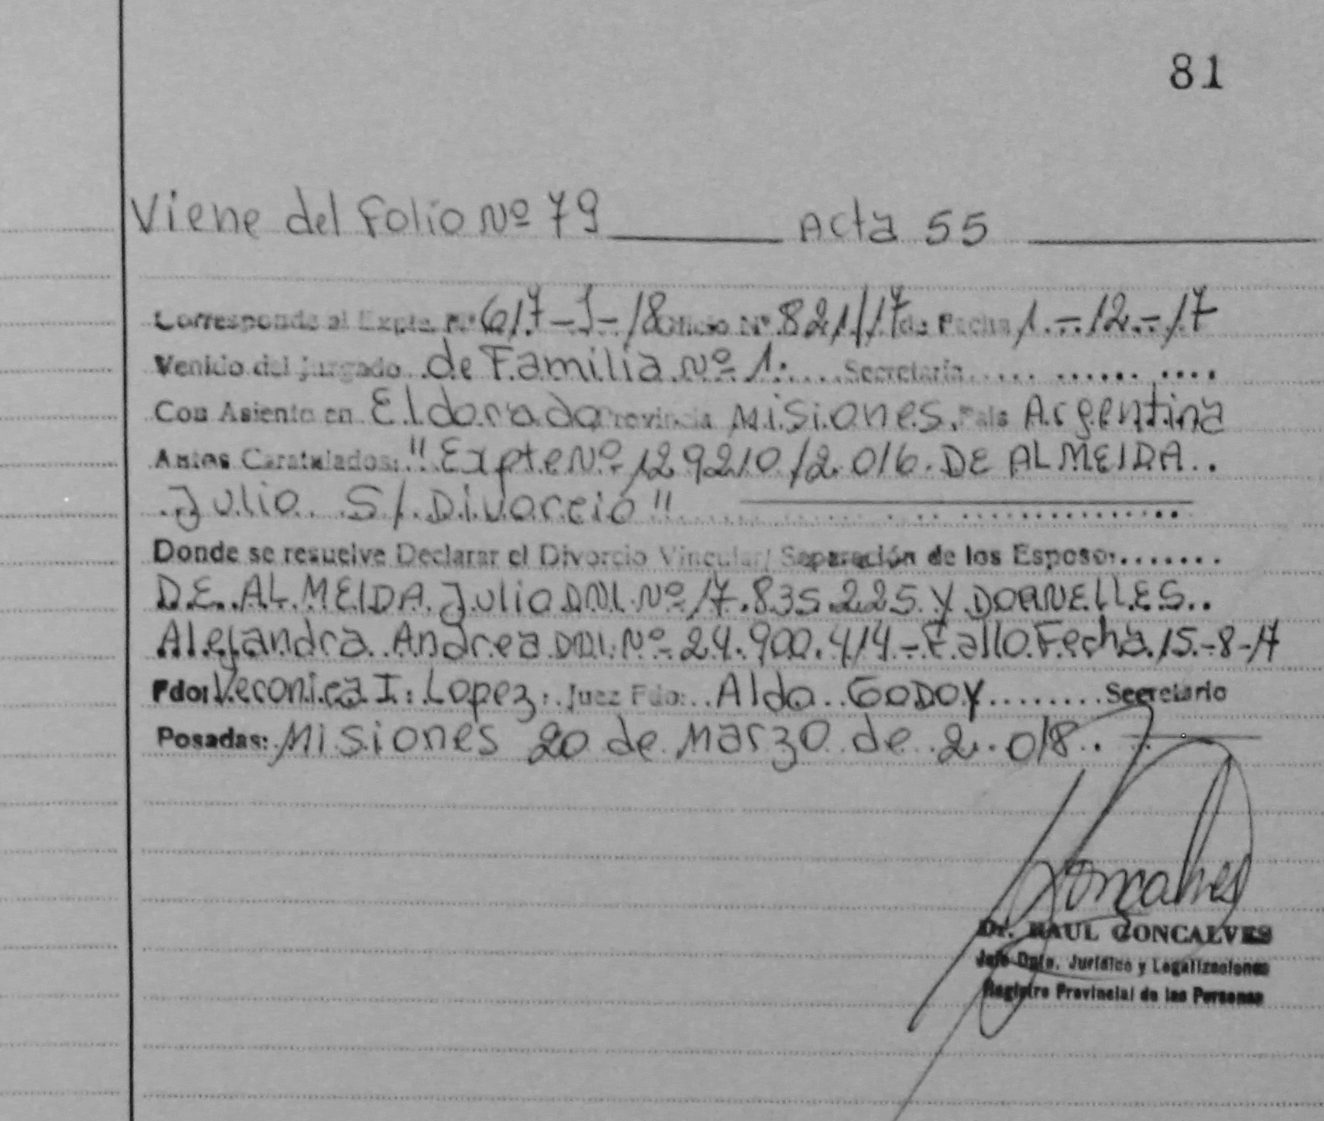 81
Viene del Folio Nº 79 Acta 55
Corresponde al Expte. Nº 617-J-18 Oficio Nº 821/17 de Fecha 1.-12.-17
Venido del juzgado de Familia Nº 1. Secretaría
Con Asiento en Eldorado Provincia Misiones. País Argentina
Autos Caratulados: "Expte Nº 129210/2.016. DE ALMEIDA
Julio S/ Divorcio"
Donde se resuelve Declarar el Divorcio Vincular/ Separación de los Esposos
DE ALMEIDA Julio DNI. Nº 17.835.225 Y DORNELLES
Alejandra Andrea DNI. Nº 24.900.414 - Fallo Fecha 15.-8-17
Fdo: Veronica I. Lopez. Juez Fdo: Aldo GODOY Secretario
Posadas: Misiones 20 de Marzo de 2.018.
Goncalves
Dr. RAUL GONCALVES
Jefe Dpto. Jurídico y Legalizaciones
Registro Provincial de las Personas